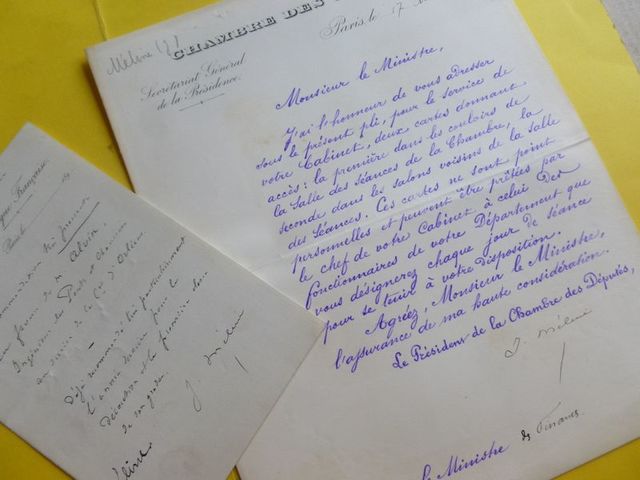 Méline (J)
CHAMBRE DES
Secrétariat Général
de la Présidence
Paris, le 17
Monsieur le Ministre,
J'ai l'honneur de vous adresser
sous le présent pli, pour le service de
votre Cabinet, deux cartes donnant
accès: la première dans les couloirs de
la Salle des Séances de la Chambre, la
seconde dans les salons voisins de la Salle
des Séances. Ces cartes ne sont point
personnelles et peuvent être prêtées par
le chef de votre Cabinet à celui des
fonctionnaires de votre Département que
vous désignerez chaque jour de séance
pour se tenir à votre disposition.
Agréez, Monsieur le Ministre,
l'assurance de ma haute considération.
Le Président de la Chambre des Députés,
J. Méline
le Ministre des Finances
Française
Paris le
en faveur de M. Alvin
Ingénieur des Ponts et Chaussées
au service de la Cie d'Orléans
Déjà recommandé très particulièrement
l'année dernière pour la
décoration et la première
de son grade.
J. Méline